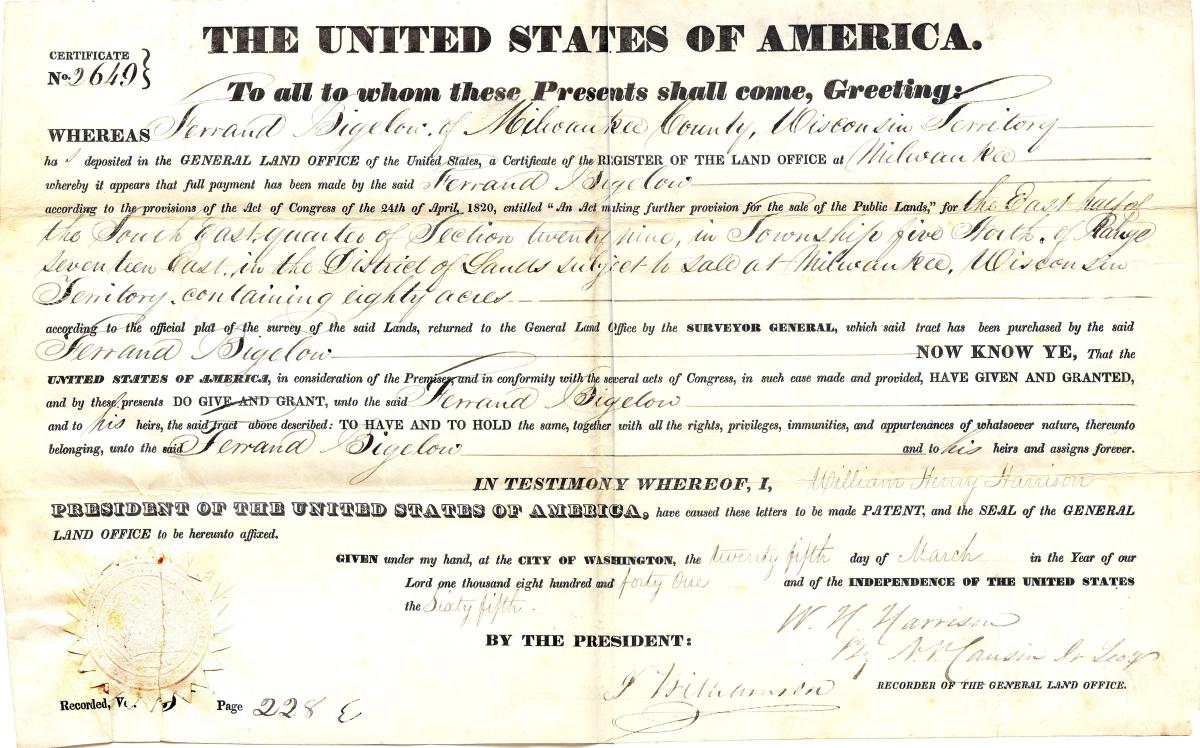 THE UNITED STATES OF AMERICA.
CERTIFICATE
No. 2649
To all to whom these Presents shall come, Greeting:
WHEREAS Ferrand Bigelow, of Milwaukee County, Wisconsin Territory
has deposited in the GENERAL LAND OFFICE of the United States, a Certificate of the REGISTER OF THE LAND OFFICE at Milwaukee
whereby it appears that full payment has been made by the said Ferrand Bigelow
according to the provisions of the Act of Congress of the 24th of April, 1820, entitled "An Act making further provision for the sale of the Public Lands," for the East half of
the South East quarter of Section twenty nine, in Township five North, of Range
seventeen East, in the District of Lands subject to sale at Milwaukee, Wisconsin
Territory, containing eighty acres
according to the official plat of the survey of the said Lands, returned to the General Land Office by the SURVEYOR GENERAL, which said tract has been purchased by the said
Ferrand Bigelow NOW KNOW YE, That the
UNITED STATES OF AMERICA, in consideration of the Premises, and in conformity with the several acts of Congress, in such case made and provided, HAVE GIVEN AND GRANTED,
and by these presents DO GIVE AND GRANT, unto the said Ferrand Bigelow
and to his heirs, the said tract above described: TO HAVE AND TO HOLD the same, together with all the rights, privileges, immunities, and appurtenances of whatsoever nature, thereunto
belonging, unto the said Ferrand Bigelow and to his heirs and assigns forever.
IN TESTIMONY WHEREOF, I, William Henry Harrison
PRESIDENT OF THE UNITED STATES OF AMERICA, have caused these letters to be made PATENT, and the SEAL of the GENERAL
LAND OFFICE to be hereunto affixed.
GIVEN under my hand, at the CITY OF WASHINGTON, the twenty fifth day of March in the Year of our
Lord one thousand eight hundred and forty One and of the INDEPENDENCE OF THE UNITED STATES
the Sixty fifth.
BY THE PRESIDENT: W. H. Harrison
By
J Williamson RECORDER OF THE GENERAL LAND OFFICE.
Recorded, Page 228 E